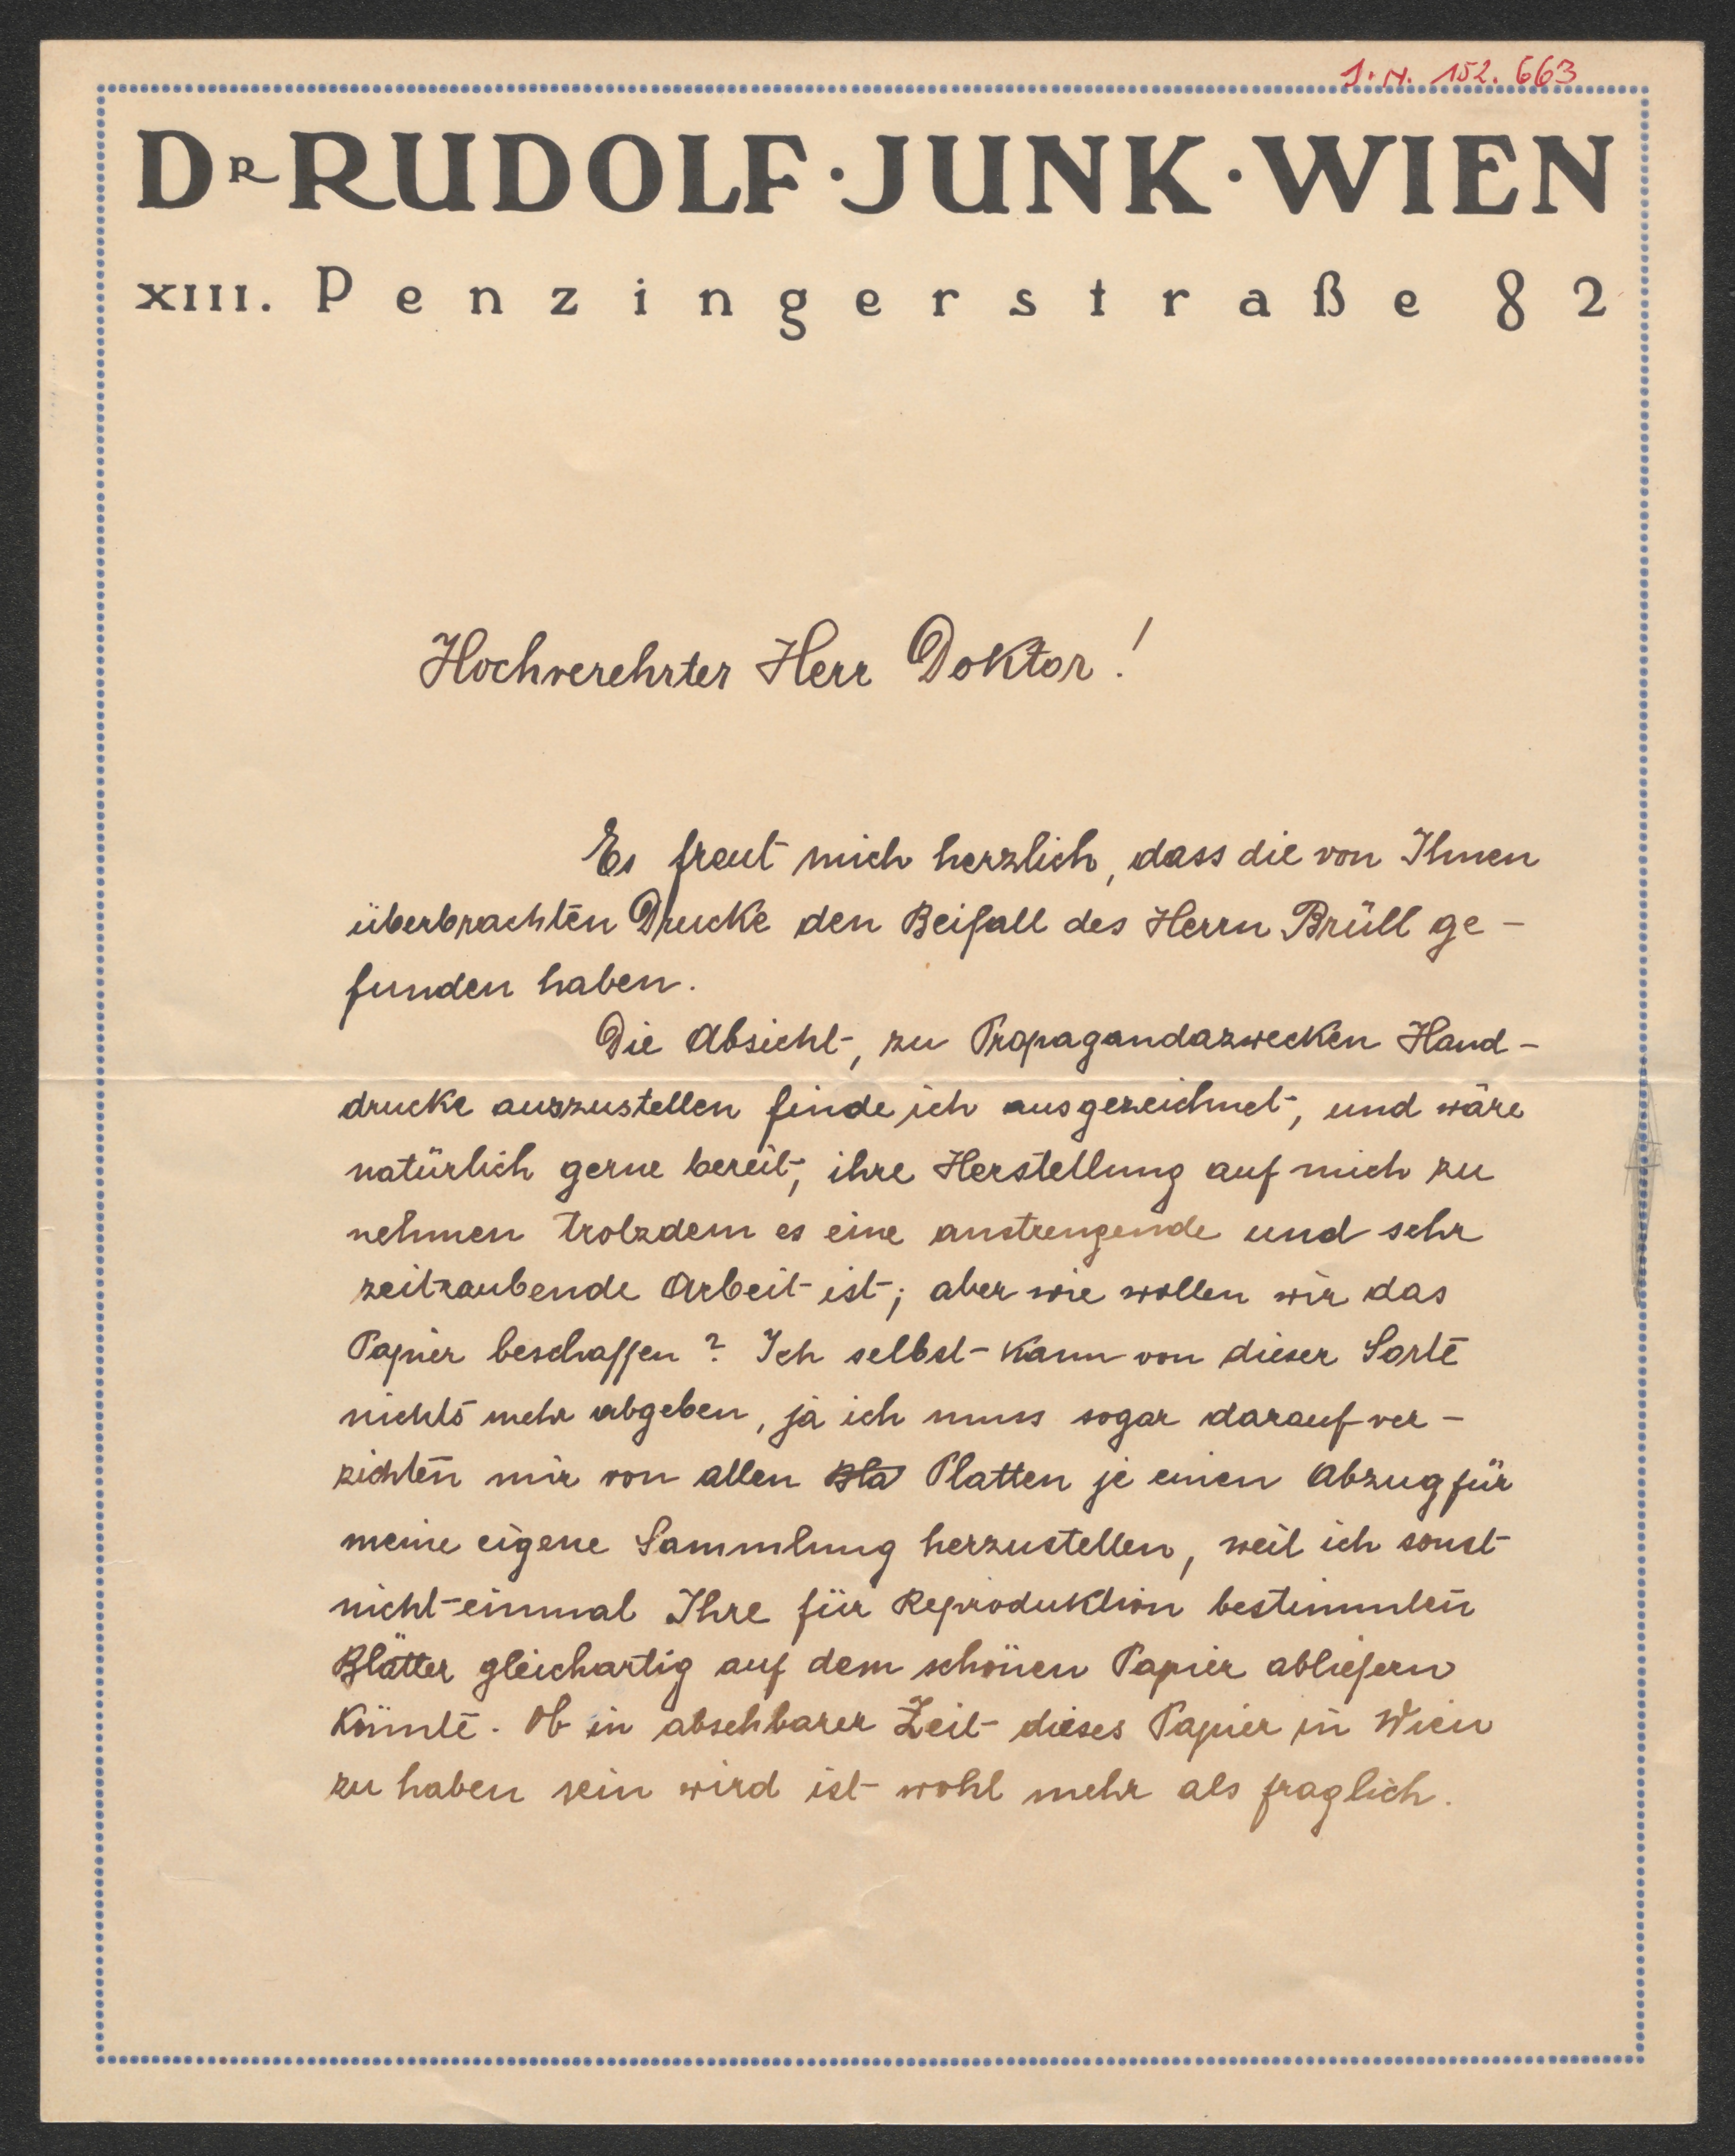 J. N. 152.663
DR RUDOLF · JUNK · WIEN
XIII. Penzingerstraße 82
Hochverehrter Herr Doktor!
Es freut mich herzlich, dass die von Ihnen
überbrachten Drucke den Beifall des Herrn Brüll ge-
funden haben.
Die Absicht, zu Propagandazwecken Hand-
drucke auszustellen finde ich ausgezeichnet, und wäre
natürlich gerne bereit, ihre Herstellung auf mich zu
nehmen trotzdem es eine anstrengende und sehr
zeitraubende Arbeit ist; aber wie wollen wir das
Papier beschaffen? Ich selbst kann von dieser Sorte
nichts mehr abgeben, ja ich muss sogar darauf ver-
zichten mir von allen Bla Platten je einen Abzug für
meine eigene Sammlung herzustellen, weil ich sonst
nicht einmal Ihre für Reproduktion bestimmten
Blätter gleichartig auf dem schönen Papier abliefern
könnte. Ob in absehbarer Zeit dieses Papier in Wien
zu haben sein wird ist wohl mehr als fraglich.